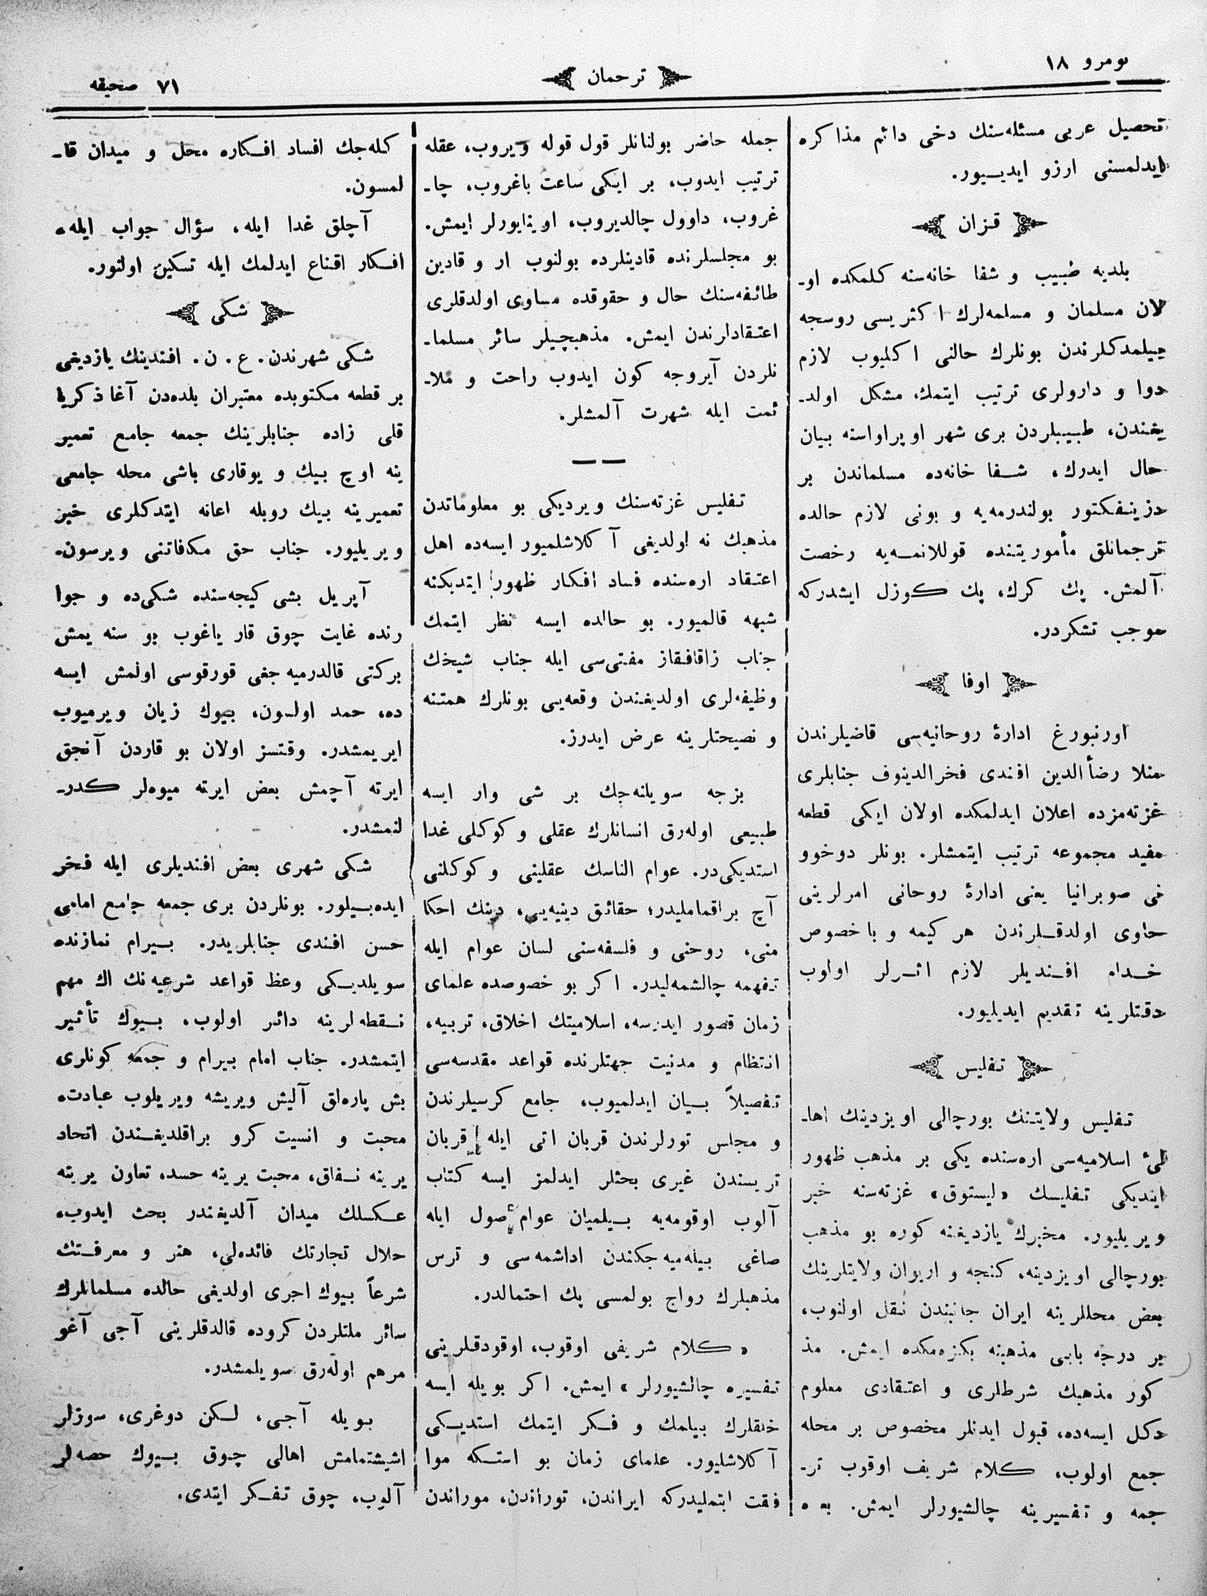 نومرو ١٨
ترجمان
٧١ صحيفه
تحصيل عربى مسئله‌سنك دخى دائم مذاكره
ايدلمسنى ارزو ايديـيور.
قـزان
بلديه طبيب و شفا خانه‌سنه كلمكده او-
لان مسلمان و مسلمه‌لرك اكثريسى روسجه
بيلمدكلرندن بونلرك حالنى اكليوب لازم
دوا و دارولرى ترتيب ايتمك مشكل اولد-
يغندن، طبيبلردن برى شهر اوپراواسنه بيان
حال ايدرك، شـفا خانه‌ده مسلماندن بر
دزينفكتور بولندرمه‌يه و بونى لازم حالده
ترجمانلق مأموريتنده قوللانمـه‌يه رخصت
آلمش. پك كرك، پك كـوزل ايشدركه
موجب تشكردر.
اوفا
اورنبورغ ادارۀ روحانيه‌سى قاضيلرندن
منلا رضأالدين افندى فخرالدينوف جنابلرى
غزته‌مزده اعلان ايدلمكده اولان ايكى قطعه
مفيد مجموعه ترتيب ايتمشلر. بونلر دوخوو
نى صوبرانيا يعنى ادارۀ روحانى امرلرينى
حاوى اولدقـلرندن هركيمه و باخصوص
خـدام افـنديلر لازم اثـرلر اولوب
دقتلرينه تقديم ايديليور.
تـفليس
تـفليس ولايتـنك بورچالى اويزدينك اها-
لئ اسلاميه‌سى اره‌سنده يكى بر مذهب ظهور
ايتديكى تـفليسك «ليستوق» غزته‌سنه خبر
ويريليور. مخبرك يازديغنه كوره بو مذهب
بورچالى اويزدينه، كنجه و اريوان ولايتلرينك
بعض محللرينه ايران جانبندن نـقل اولنوب،
بر درجه بابى مذهبنه بكزه‌مكده ايمش. مذ
كور مذهبك شرطلرى و اعتـقادى معلوم
دكل ايسه‌ده، قبول ايدنلر مخصوص بر محله
جمع اولوب، كـلام شريف اوقوب تر-
جمه و تفسيرينه چالشيورلر ايمش. بعده
جمله حاضر بولنانلر قول قوله ويروب، عقله
ترتيب ايدوب، بر ايكى ساعت باغروب، چا-
غروب، داوول چالديروب، اوينايورلر ايمش.
بو مجلسلرنده قادينلرده بولنوب ار و قادين
طائفه‌سنك حال و حقوقده مساوى اولدقلرى
اعتـقادلرندن ايمش. مذهبچيلر سائر مسلما-
نلردن آيروجه كون ايدوب راحت و ملا-
ئمت ايله شهرت آلمشلر.
تـفليس غزته‌سنك ويرديكى بو معلوماتدن
مذهبك نه اولديغى آكلاشلميور ايسه‌ده اهل
اعتـقاد اره‌سنده فساد افكار ظهور ايتديكنه
شبهه قالميور. بو حالده ايسه نظر ايتمك
جناب زاقافـقاز مفتى‌سى ايله جناب شيخك
وظيفه‌لرى اولديغـندن وقعه‌يى بونلرك همتـنه
و نصيحتلرينه عرض ايدرز.
بزجه سويلنه‌جك بر شى وار ايسه
طبيعى اوله‌رق انسانلرك عقلى و كوكلى غدا
استديكى‌در. عوام الناسك عقلينى و كوكلنى
آچ براقمامليدر؛ حقائق دينيه‌يى، دينك احكا
منى، روحنى و فلسفه‌سنى لسان عوام ايله
تـفهمه چالشمه‌ليدر. اكر بو خصوصده علماى
زمان قصور ايدرسه، اسلاميتك اخلاق، تربيه،
انتظام و مدنيت جهتلرنده قواعد مقدسه‌سى
تـفصيلاً بـيان ايدلميوب، جامع كرسيلرندن
و مجلس تورلرندن قربان اتى ايله قربان
تريسندن غيرى بحثلر ايدلمز ايسه كتاب
آلوب اوقومه‌يه بـيلميان عوام صول ايله
صاغى بيله‌ميه‌جكندن اداشمه‌سى و ترس
مذهبلرك رواج بولمسى پك احتمالدر.
«كـلام شريفى اوقوب، اوقودقلرينى
تـفسيره چالشيورلر» ايمش. اكر بويله ايسه
خلقلرك بيلمك و فـكر ايتمك استديـكى
آكلاشليور. علماى زمان بو استـكه موا
فقت ايتمليدركه ايراندن، توراندن، موراندن
كله‌جك افساد افـكاره محل و ميدان قا-
لمسون.
آچلق غدا ايله، سؤال جواب ايله،
افـكار اقناع ايدلمك ايله تسكين اولنور.
شكى
شكى شهرندن. ع. ن. افـندينك يازديغى
بر قطعه مكتوبده معتبران بلده‌دن آغا ذكريا
قلى زاده جنابلرينك جمعه جامع تعمير
ينه اوچ بيك و يوقارى باشى محله جامعى
تعميرينه بيك روبله اعانه ايتدكلرى خبر
ويريليور. جناب حق مكافاتنى ويرسون.
آپريل بشى كيجه‌سنده شكى‌ده و جوا
رنده غايت چوق قار ياغوب بو سنه يمش
بركتى قالدرميه‌جغى قورقوسى اولمش ايسه
ده، حمد اولسون، بيوك زيان ويرميوب
ايريمشدر. وقتسز اولان بو قاردن آنجق
ايرته آچمش بعض ايرته ميوه‌لر كـدر-
لنمشدر.
شكى شهرى بعض افـنديلرى ايله فـخر
ايده‌بـيلور. بونلردن برى جمعه جامع امامى
حسن افـندى جنابلريدر. بـيرام نمازنده
سويلديـكى وعظ قواعد شرعيه‌نك اك مهم
نـقطه‌لرينه دائر اولوب، بـيوك تأثير
ايتمشدر. جناب امام بيرام و جمعه كونلرى
بش پاره‌لق آليش ويريشه ويريلوب عبادت،
محبت و انسيت كرو براقلديغـندن اتحاد
يرينه نـفاق، محبت يرينه حسد، تعاون يرينه
عـكسلك ميدان آلديغـندر بحث ايدوب،
حلال تجارتك فائده‌لى، هنر و معرفـتك
شرعاً بـيوك اجرى اولديغى حالده مسلمانلرك
سائر ملتلردن كروده قالدقلرينى آجى آغو
مرهم اوله‌رق سويلمشدر.
بـويله آجى، لـكن دوغرى، سوزلر
اشيشتمامش اهالى چوق بـيوك حصه‌لر
آلوب، چوق تـفـكر ايتدى.